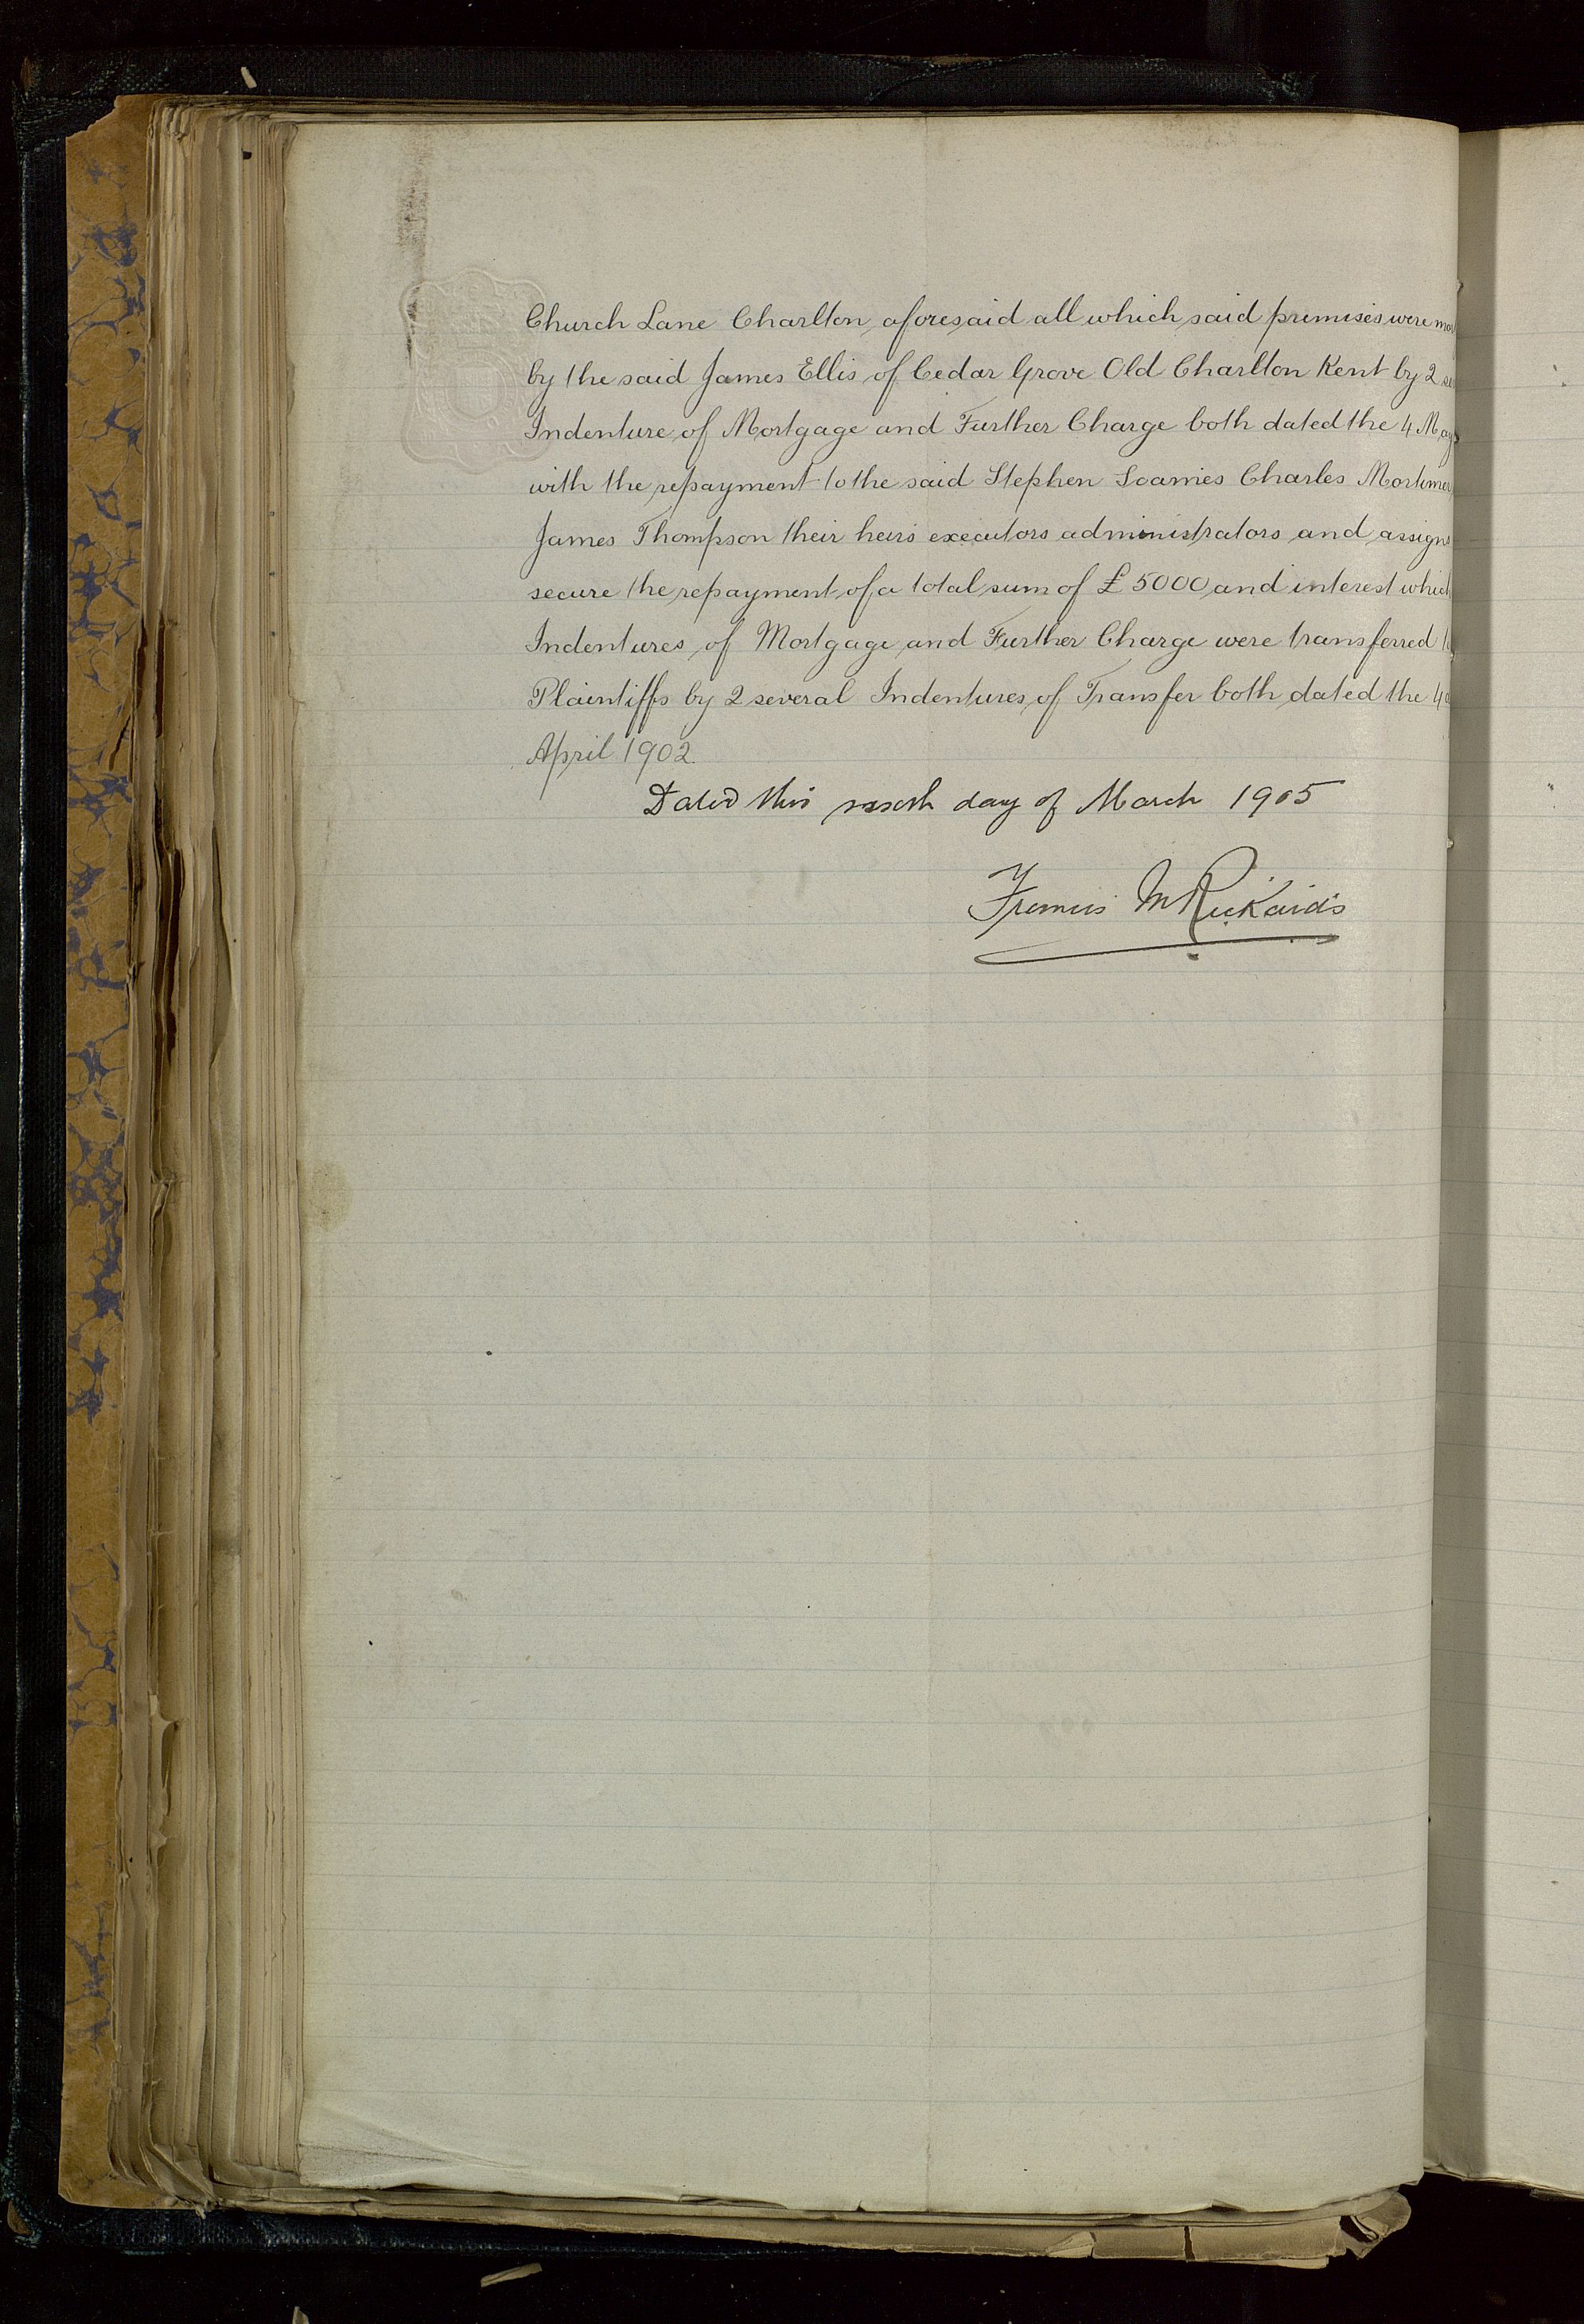 Church Lane Charlton aforesaid all which said premises were
by the said James Ellis of Cedar Grove Old Charlton Kent by 2
Indenture of Mortgage and Further Charge both dated the 4 May
with the repayment to the said Stephen Soames Charles Mortimer
James Thompson their heirs executors administrators and assigns
secure the repayment of a total sum of £5000 and interest which
Indentures of Mortgage and Further Charge were transferred to
Plaintiffs by 2 several Indentures of Transfer both dated the 4
April 1902.
Dated this day of March 1905
Francis M Rickards